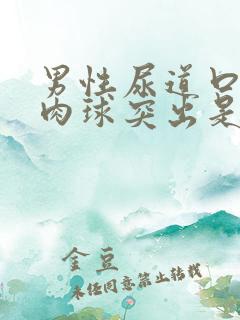 男性尿道口
肉球突出是
金豆
未经同意禁止转载